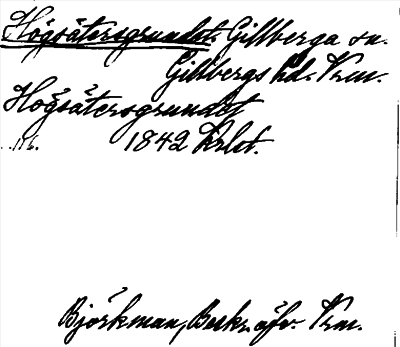 Högsätersgrundet. Gillberga sn.
Gillbergs hd. Vrm.
Högsätersgrundet
1842 krlst.
Björkman, Beskr. öfv. Vrm.